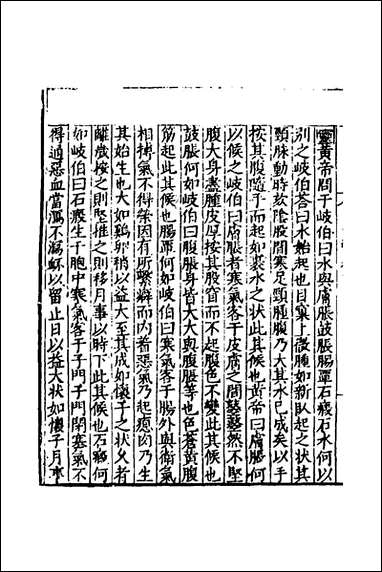 靈黃帝問于岐伯曰水與膚脹鼓脹腸覃石瘕石水何以
別之岐伯荅曰水始起也目窠上微腫如新臥起之狀其
頸脉動時欬陰股間寒足䯒腫腹乃大其水已成矣以手
按其腹隨手而起如裹水之狀此其候也黃帝曰膚脹何
以候之岐伯曰膚脹者寒氣客于皮膚之間𪔣𪔣然不堅
腹大身盡腫皮厚按其腹窅而不起腹色不變此其候也
鼓脹何如岐伯曰腹脹身皆大大與膚脹等也色蒼黃腹
筋起此其候也腸覃何如岐伯曰寒氣客于腸外與衛氣
相摶氣不得榮因有所繫癖而內着惡氣乃起瘜肉乃生
其始生也大如鷄卵稍以益大至其成如懷子之狀久者
離歲按之則堅推之則移月事以時下此其候也石瘕何
如岐伯曰石瘕生于胞中寒氣客于子門子門閉塞氣不
得通惡血當瀉不瀉衃以留止日以益大狀如懷子月事